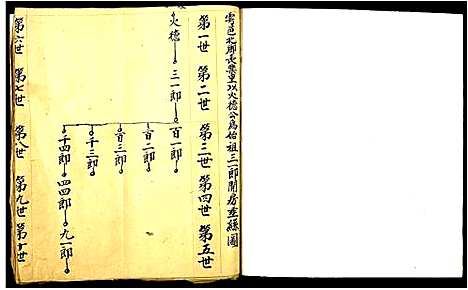 寧邑北鄉長樂里以火德公爲始祖三一郎開房垂絲圖
第一世 第二世 第三世 第四世 第五世
火德 三一郎 百一郎
百二郎
百三郎
千三郎
千四郎 四四郎 九一郎
第六世 第七世 第八世 第九世 第十世